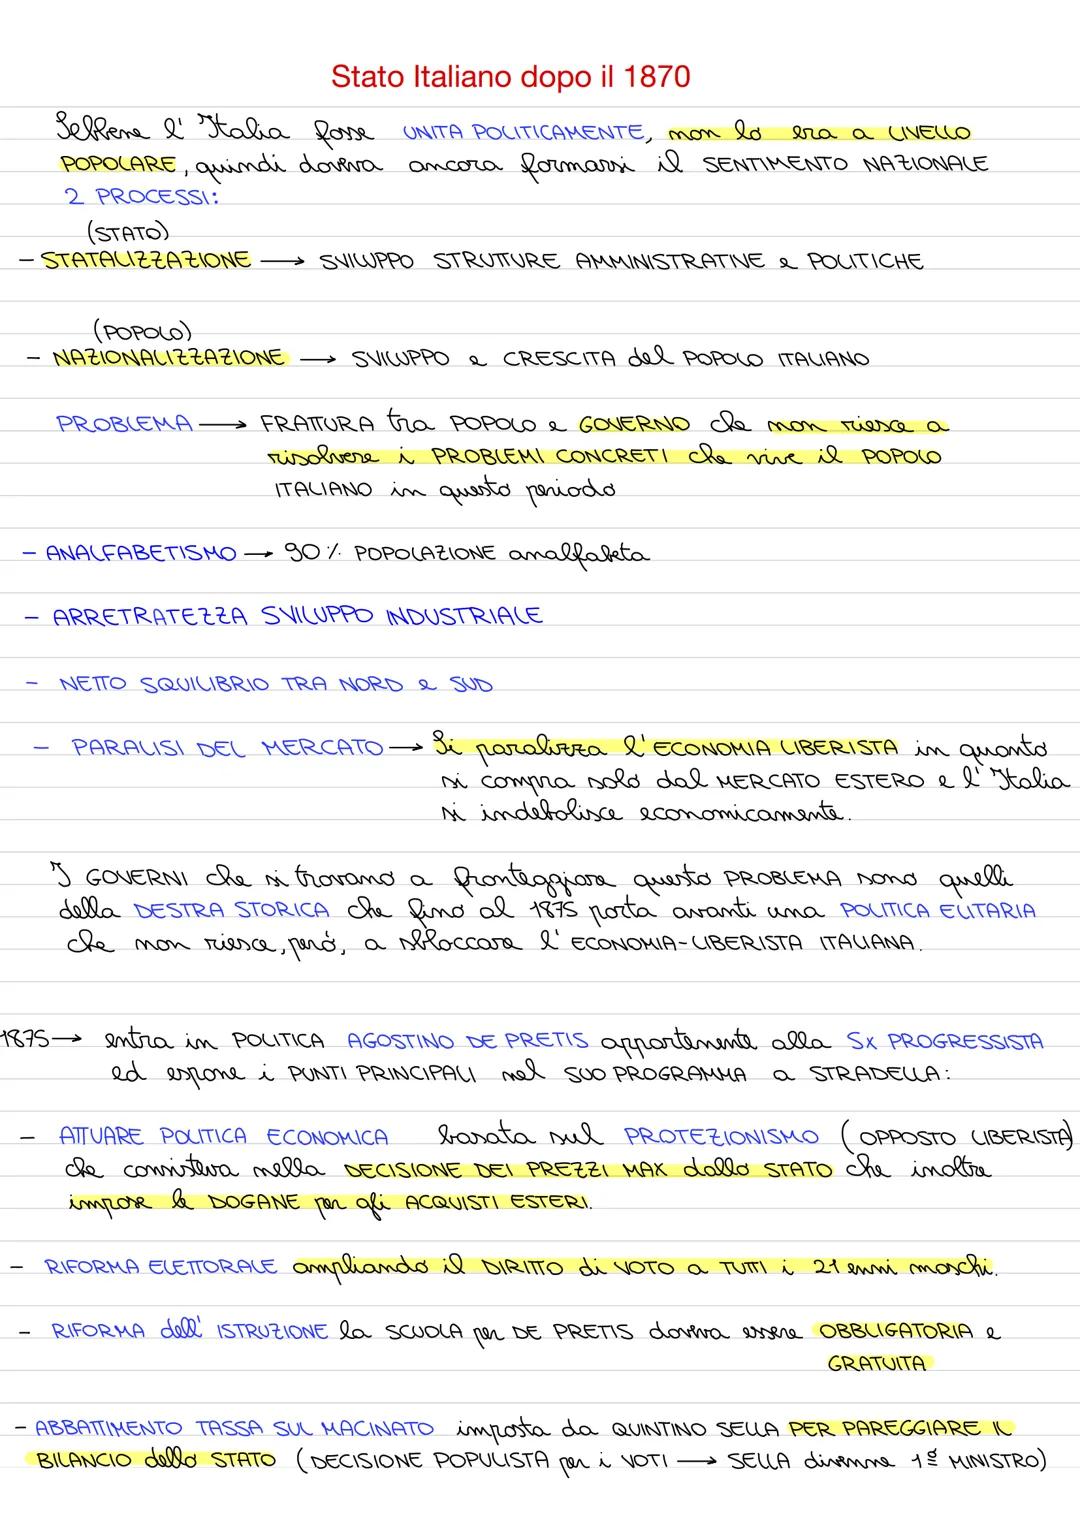 Stato Italiano dopo il 1870
Sebbene l'Italia fosse UNITA POLITICAMENTE, non lo era a LIVELLO
POPOLARE, quindi doveva ancora formarsi il SENTIMENTO NAZIONALE
2 PROCESSI:
(STATO)
- STATALIZZAZIONE → SVILUPPO STRUTTURE AMMINISTRATIVE e POLITICHE
(POPOLO)
- NAZIONALIZZAZIONE → SVILUPPO e CRESCITA del POPOLO ITALIANO
PROBLEMA → FRATTURA tra POPOLO e GOVERNO che non riesce a
risolvere i PROBLEMI CONCRETI che vive il POPOLO
ITALIANO in questo periodo
- ANALFABETISMO → 90% POPOLAZIONE analfabeta
- ARRETRATEZZA SVILUPPO INDUSTRIALE
- NETTO SQUILIBRIO TRA NORD e SUD
- PARALISI DEL MERCATO → Si paralizza l'ECONOMIA LIBERISTA in quanto
si compra solo dal MERCATO ESTERO e l'Italia
si indebolisce economicamente.
I GOVERNI che si trovano a fronteggiare questo PROBLEMA sono quelli
della DESTRA STORICA che fino al 1875 porta avanti una POLITICA ELITARIA
che non riesce, però, a sbloccare l'ECONOMIA-LIBERISTA ITALIANA.
1875 → entra in POLITICA AGOSTINO DE PRETIS appartenente alla Sx PROGRESSISTA
ed espone i PUNTI PRINCIPALI nel SUO PROGRAMMA a STRADELLA:
- ATTUARE POLITICA ECONOMICA basata sul PROTEZIONISMO (OPPOSTO LIBERISTA)
che consisteva nella DECISIONE DEI PREZZI MAX dallo STATO che inoltre
impose le DOGANE per gli ACQUISTI ESTERI.
- RIFORMA ELETTORALE ampliando il DIRITTO di VOTO a TUTTI i 21 enni maschi.
- RIFORMA dell'ISTRUZIONE la SCUOLA per DE PRETIS doveva essere OBBLIGATORIA e
GRATUITA
- ABBATTIMENTO TASSA SUL MACINATO imposta da QUINTINO SELLA PER PAREGGIARE IL
BILANCIO dello STATO (DECISIONE POPULISTA per i VOTI → SELLA divenne 1º MINISTRO)